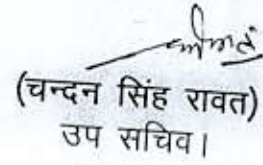 (चन्दन सिंह रावत)
उप सचिव।